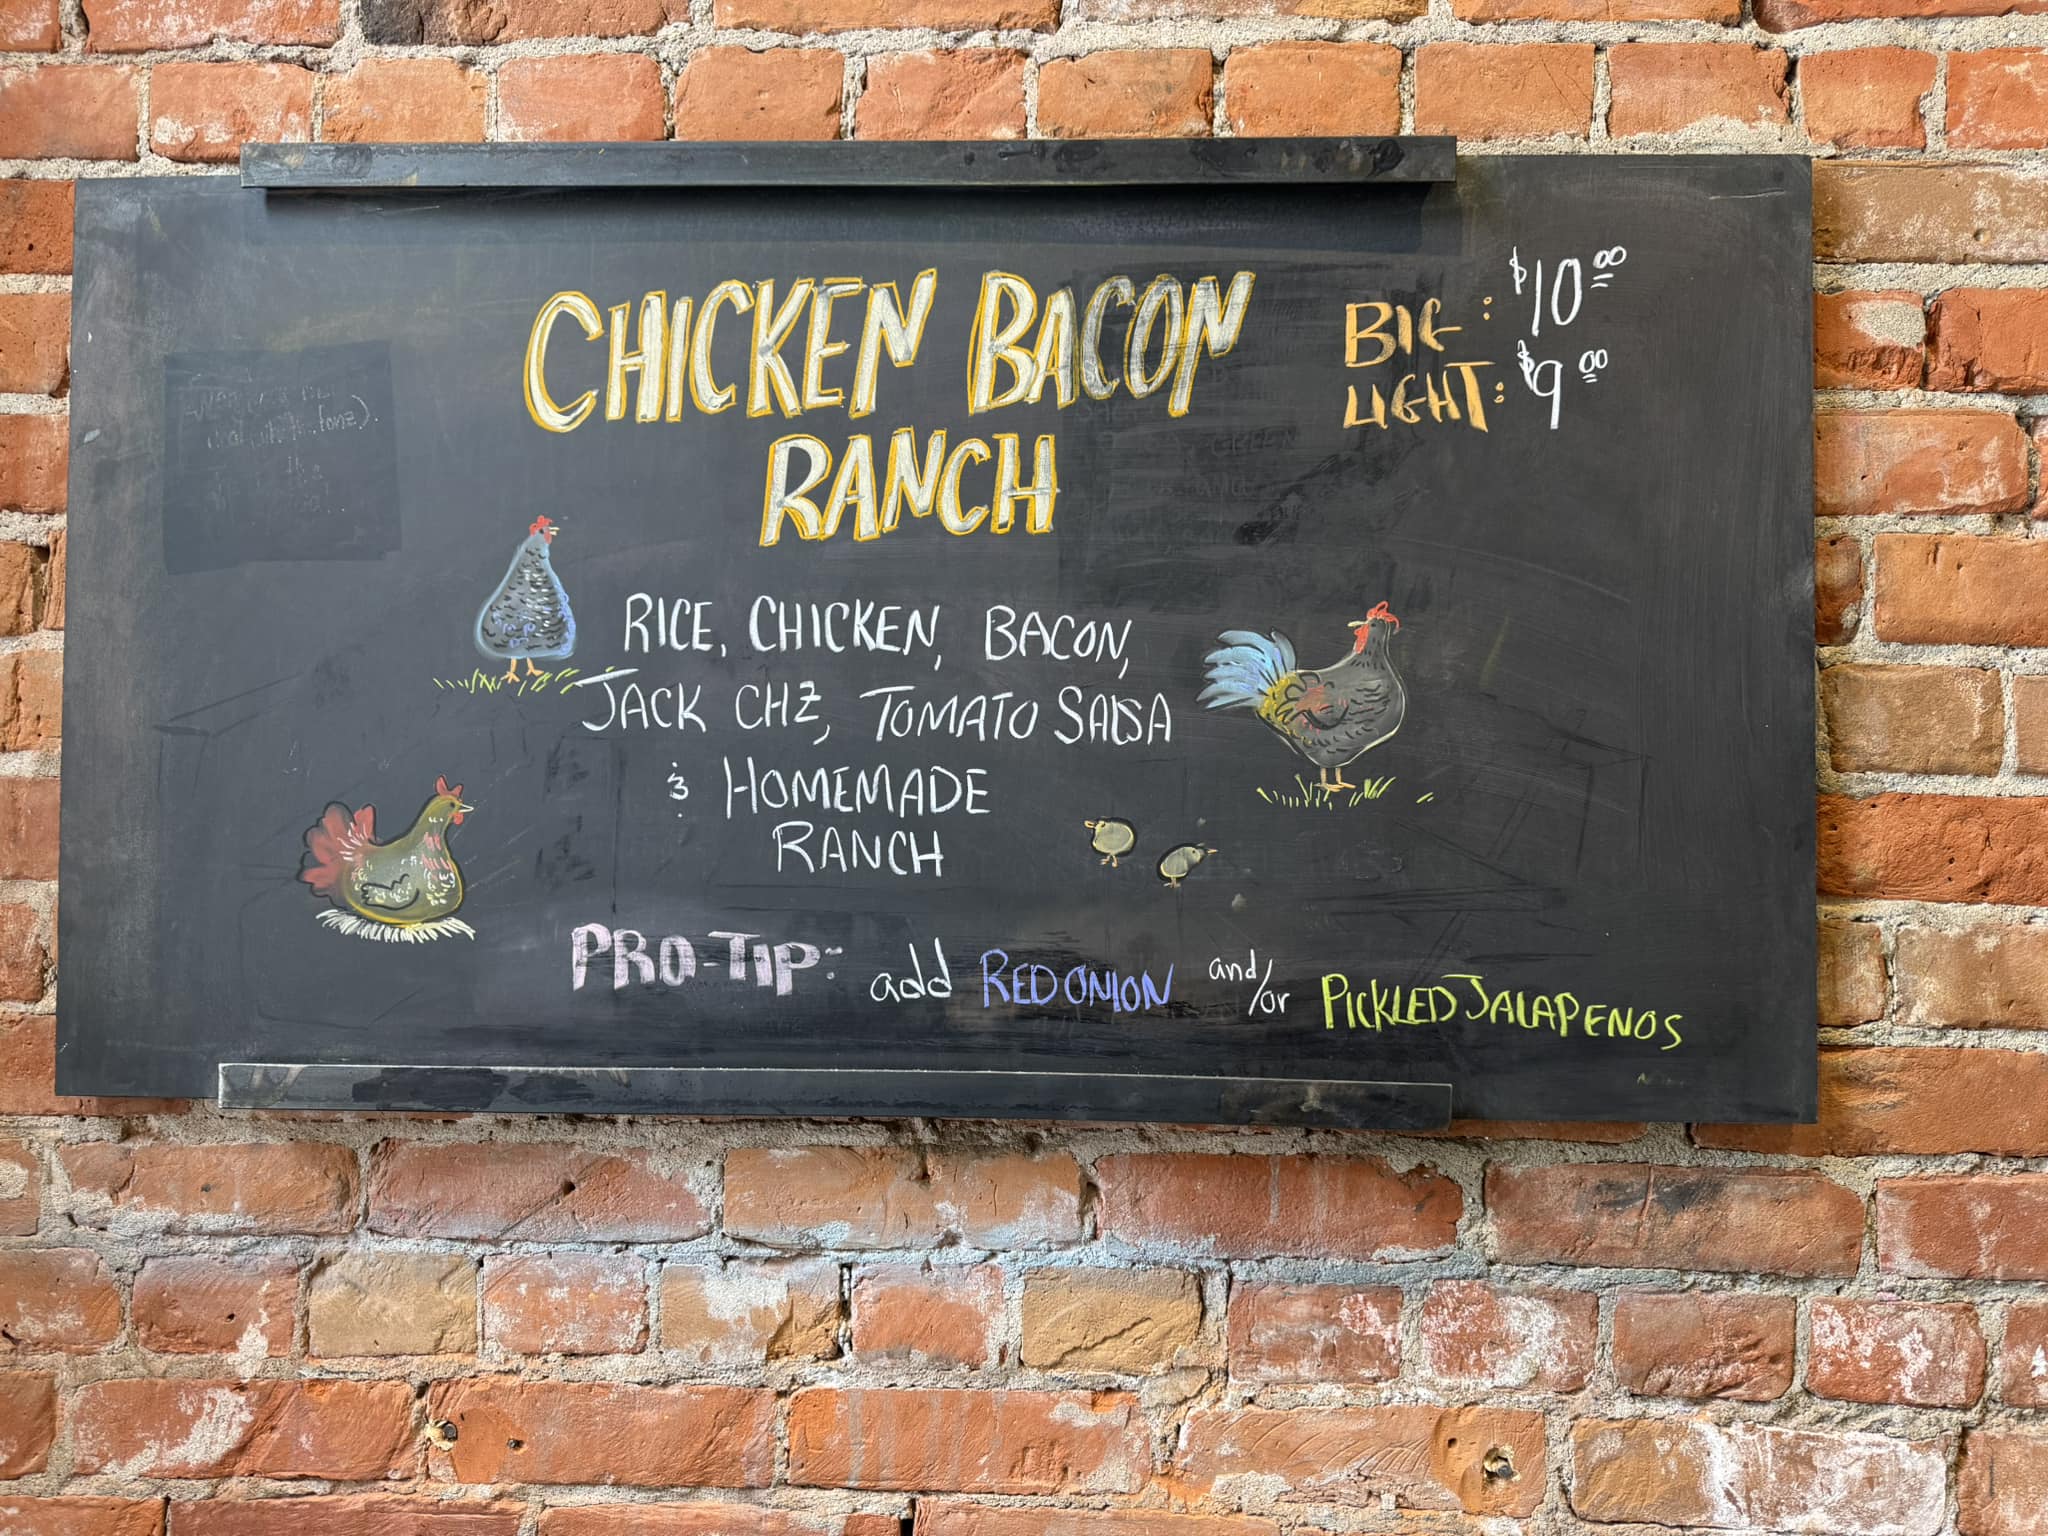 CHICKEN BACON
RANCH
BIG: $10.00
LIGHT: $9.00
RICE, CHICKEN, BACON,
JACK CHZ, TOMATO SALSA
& HOMEMADE
RANCH
PRO-TIP: add RED ONION and/or PICKLED JALAPENOS